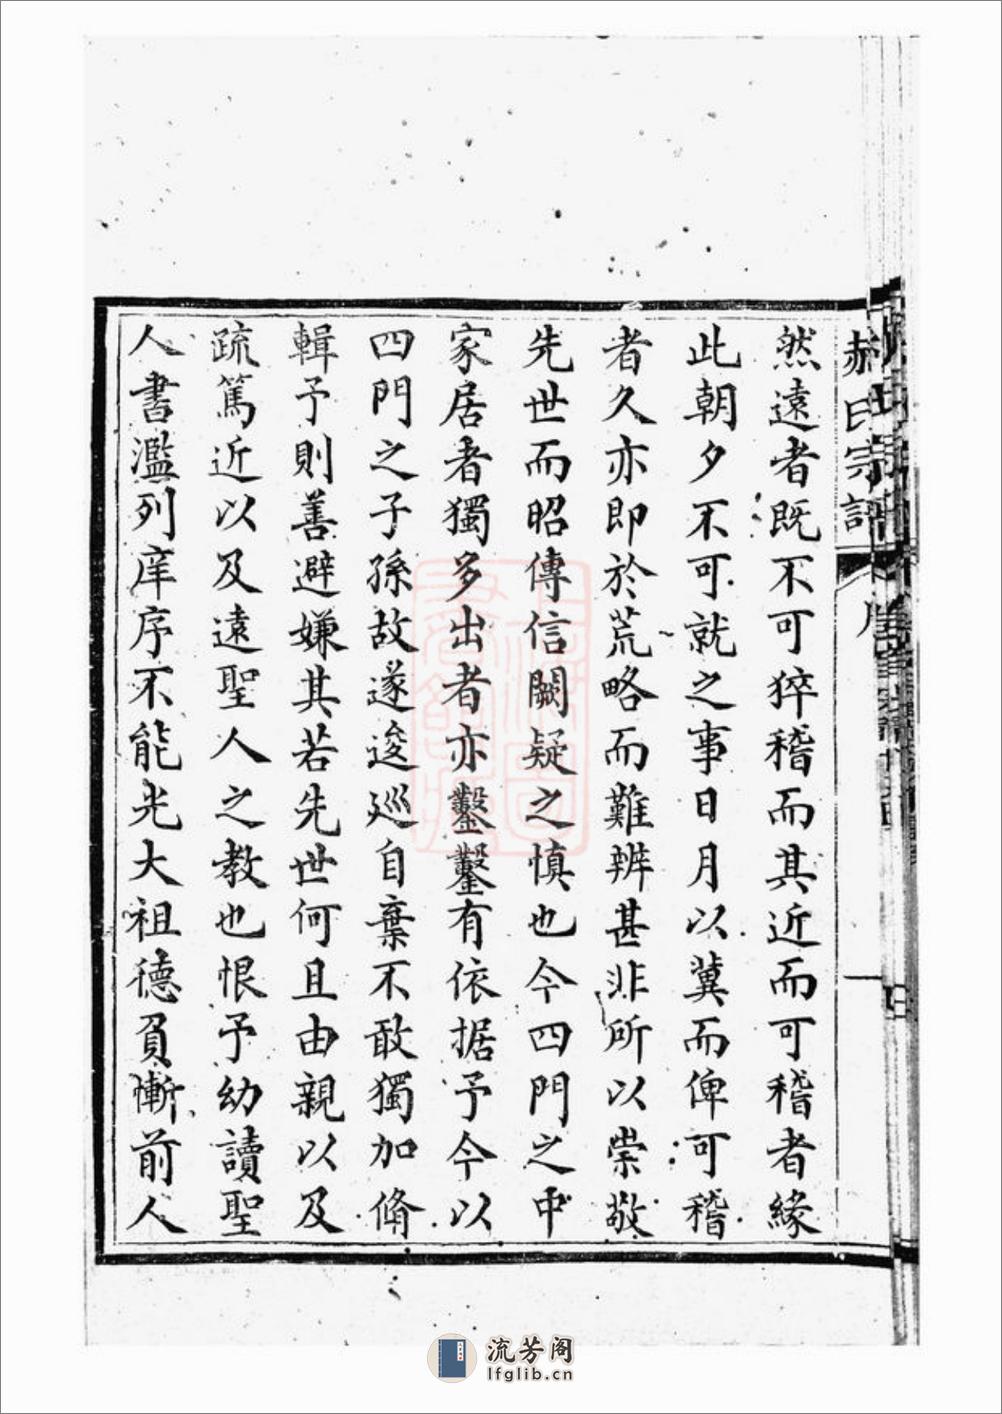 赤氏宗譜
序
一
然遠者既不可猝稽而其近而可稽者緣
此朝夕不可就之事日月以冀而俾可稽
者久亦即於荒略而難辨甚非所以崇敬
先世而昭傳信闕疑之慎也今四門之中
家居者獨多出者亦鑿鑿有依据予今以
四門之子孫故遂逡巡自棄不敢獨加脩
輯予則善避嫌其若先世何且由親以及
疏篤近以及遠聖人之教也恨予幼讀聖
人書濫列庠序不能光大祖德負慚前人
流芳阁
lfglib.cn